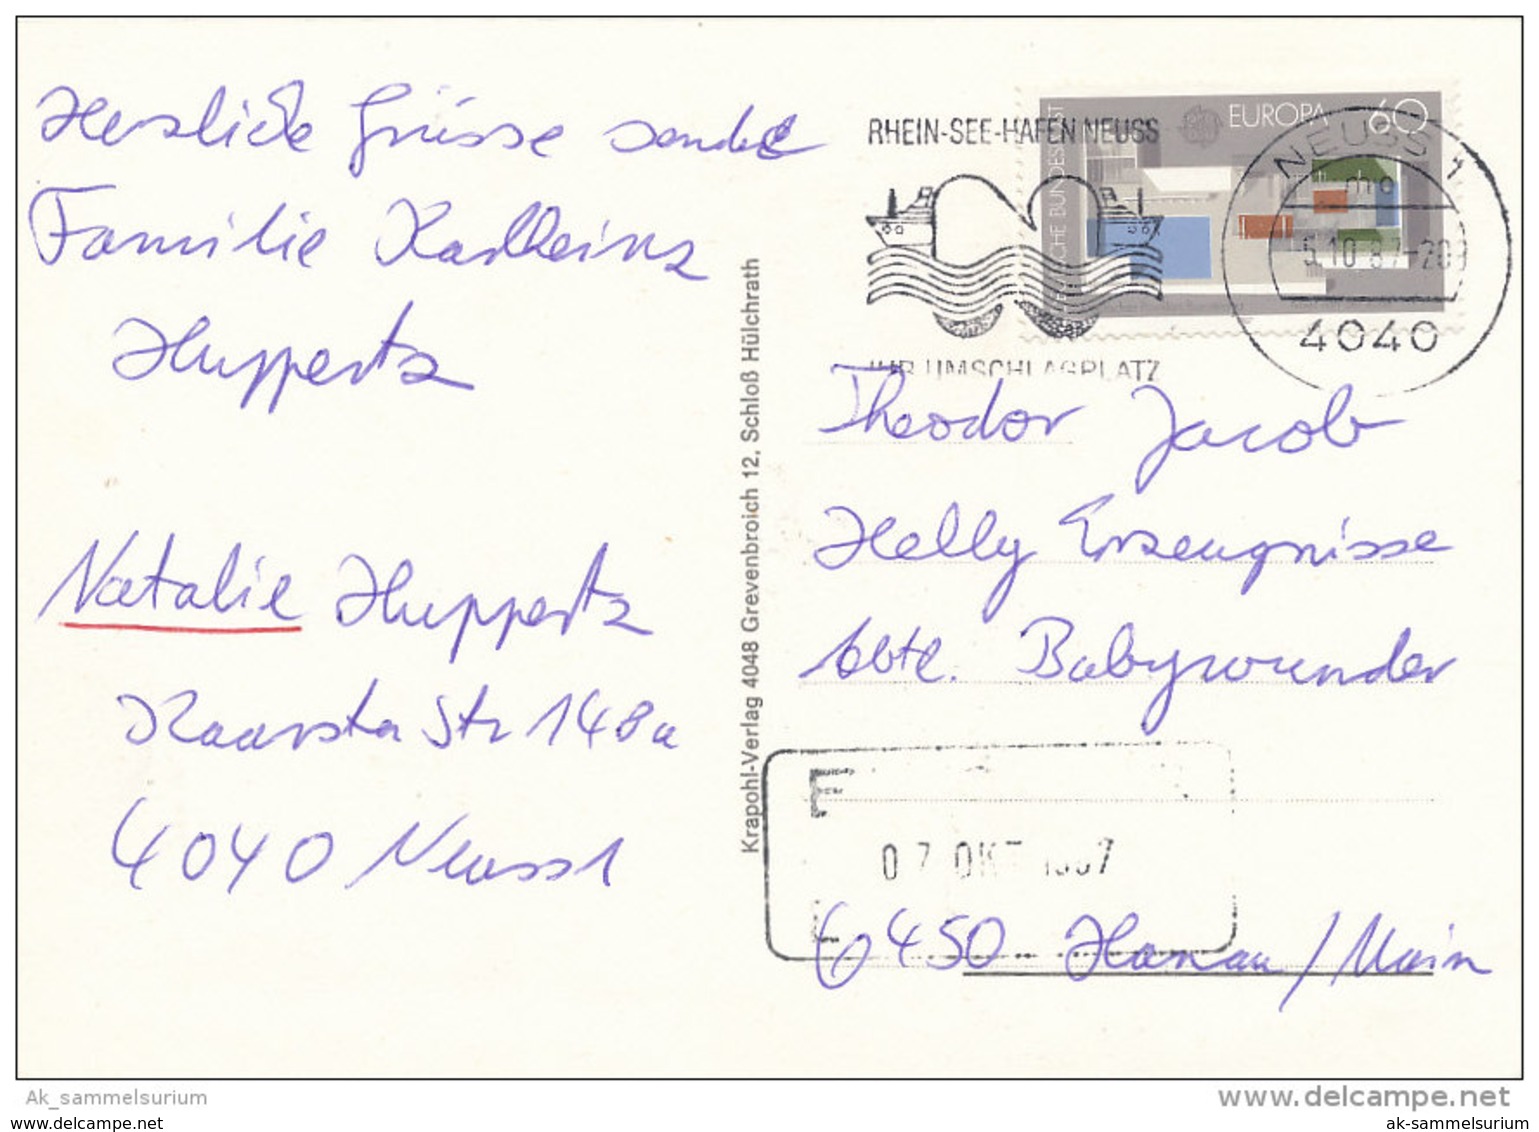 Herzliche Grüsse sendet
Familie Karlheinz
Huppertz
Natalie Huppertz
Kaarster Str 148a
4040 Neuss 1
Krapohl-Verlag 4048 Grevenbroich 12, Schloß Hülchrath
RHEIN-SEE-HAFEN NEUSS
IHR UMSCHLAGPLATZ
DEUTSCHE BUNDESPOST
EUROPA 60
NEUSS 1
mo
5.10.87-20
4040
Theodor Jacob
Helly Erzeugnisse
Abtl. Babywunder
07 OKT 1987
6450 Hanau/Main
Ak_sammelsurium
www.delcampe.net
www.delcampe.net
ak-sammelsurium